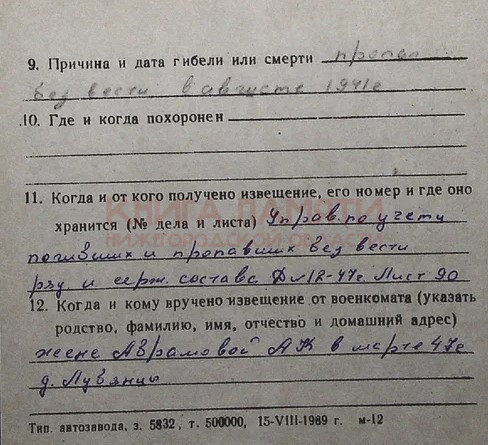 9. Причина и дата гибели или смерти пропал
без вести в августе 1941г
10. Где и когда похоронен
11. Когда и от кого получено извещение, его номер и где оно
хранится (№ дела и листа) Управ. по учету
погибших и пропавших без вести
ряд. и серж. состава Д №18-47г. Лист 90
12. Когда и кому вручено извещение от военкомата (указать
родство, фамилию, имя, отчество и домашний адрес)
жене Абрамовой А К в марте 47г
д. Лубянцы
Тип. автозавода, з. 5832, т. 500000, 15-VIII-1989 г. м-12
КНИГА ПАМЯТИ
НИЖЕГОРОДСКОЙ